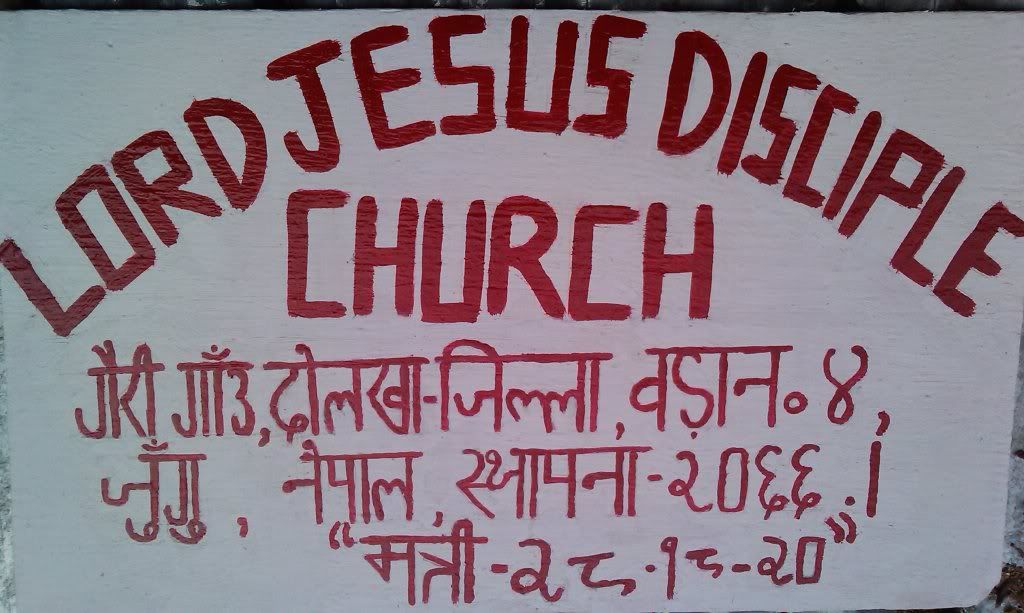 LORD JESUS DISCIPLE
CHURCH
गैरी गाँउ, ढोलखा-जिल्ला, वडा न॰ ४,
जुँगु, नेपाल, स्थापना-२०६६.।
“मत्ती-२८.१८-२०”